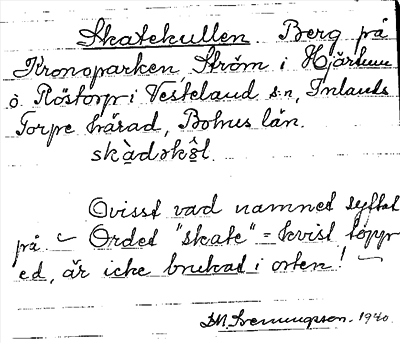 Skatekullen Berg på
Kronoparken, Ström i Hjärtum
o. Röstorp i Vesteland s:n, Inlands
Torpe härad, Bohus län.
skàdəkl̥
Ovisst vad namnet syftat
på – Ordet "skate" = kvist topp
ed, är icke brukat i orten! –
1940.